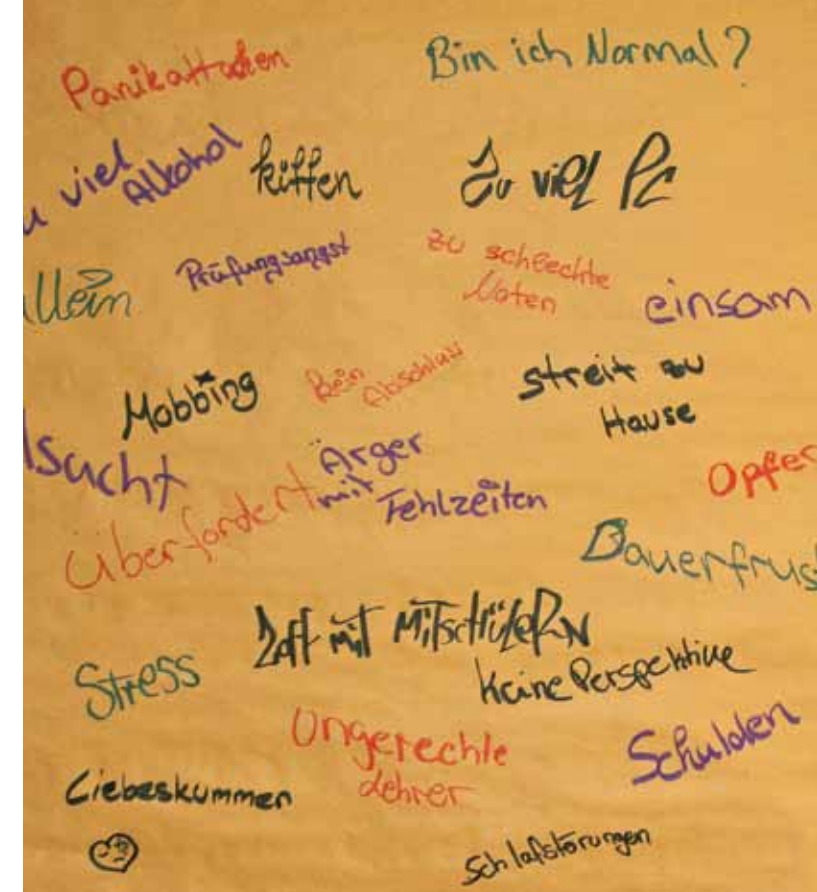 Panikattacken
Bin ich Normal?
u viel
Alkohol
kiffen
Zu viel PC
llein
Prüfungsangst
zu schlechte
Noten
einsam
Mobbing
Kein
Abschluss
streit zu
Hause
lsucht
Ärger
mit
Fehlzeiten
Opfer
Überfordert
Dauerfrus
Zoff mit Mitschülern
Stress
Keine Perspektive
Ungerechte
Lehrer
Schulden
Liebeskummer
Schlafstörungen